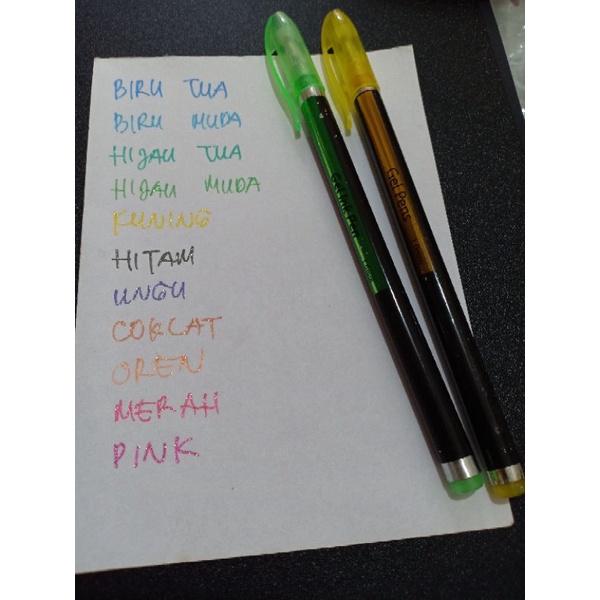 BIRU TUA
BIRU MUDA
HIJAU TUA
HIJAU MUDA
KUNING
HITAM
UNGU
COKLAT
OREN
MERAH
PINK
Gel Ink Pen
Gel Pens